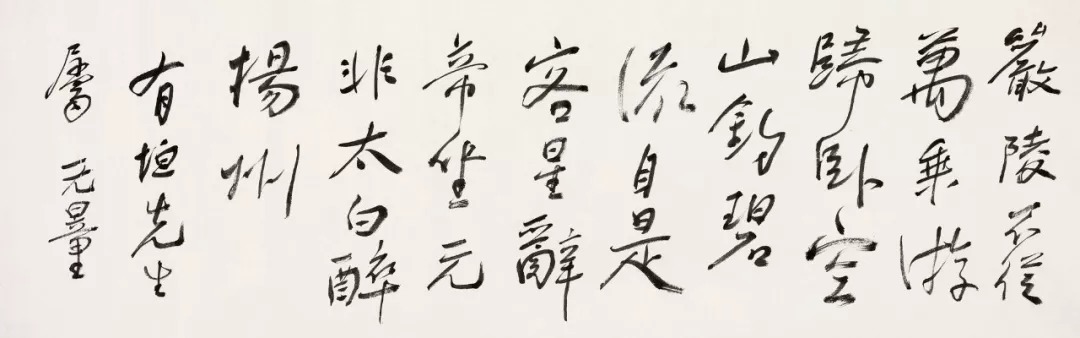 嚴陵不從
萬乘游
歸臥空
山釣碧
流自是
客星辭
帝坐元
非太白醉
楊州
有垣先生
屬 无量